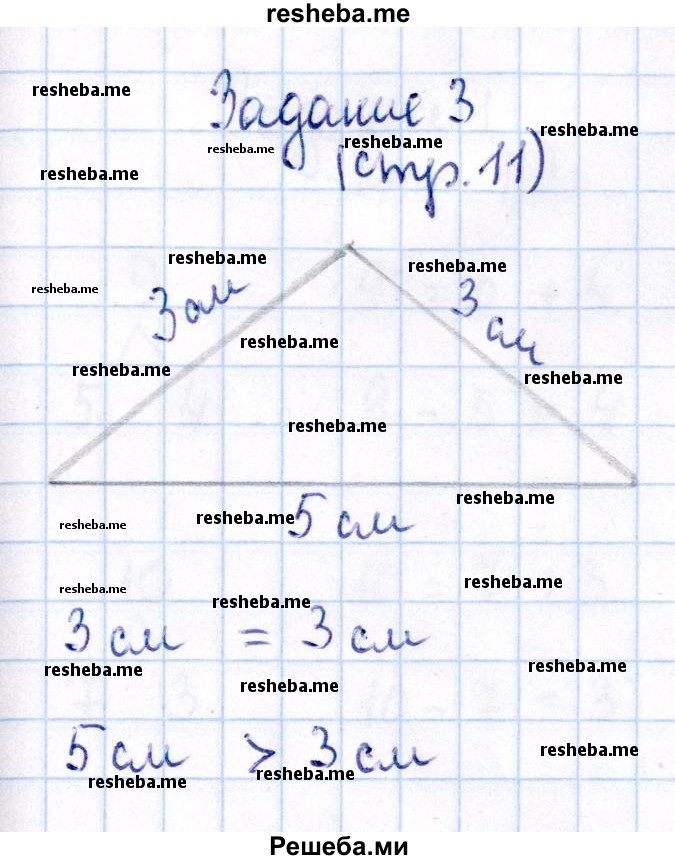 resheba.me
resheba.me
Задание 3
resheba.me
resheba.me
resheba.me
resheba.me
(стр. 11)
resheba.me
resheba.me
resheba.me
3 см
3 см
resheba.me
resheba.me
resheba.me
resheba.me
resheba.me
resheba.me
resheba.me
5 см
resheba.me
resheba.me
resheba.me
3 см = 3 см
resheba.me
resheba.me
resheba.me
resheba.me
5 см > 3 см
resheba.me
resheba.me
resheba.me
Решеба.ми